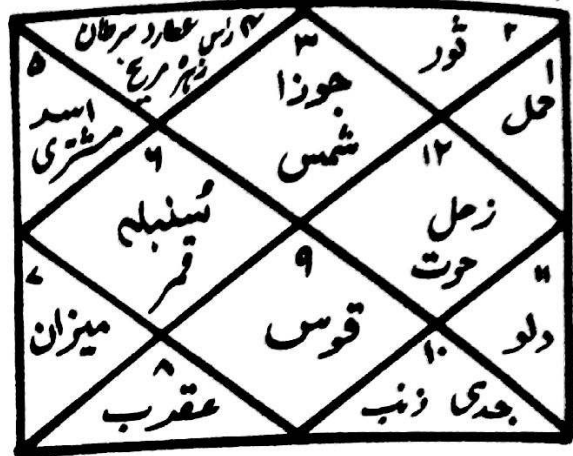 ۴ راس عطارد سرطان
زہرہ مریخ
۳
جوزا
شمس
۲
ثور
۱
حمل
۵
اسد
مشتری
۶
سُنبلہ
قمر
۱۲
زحل
حوت
۷
میزان
۹
قوس
۱۱
دلو
۸
عقرب
۱۰
جدی ذنب